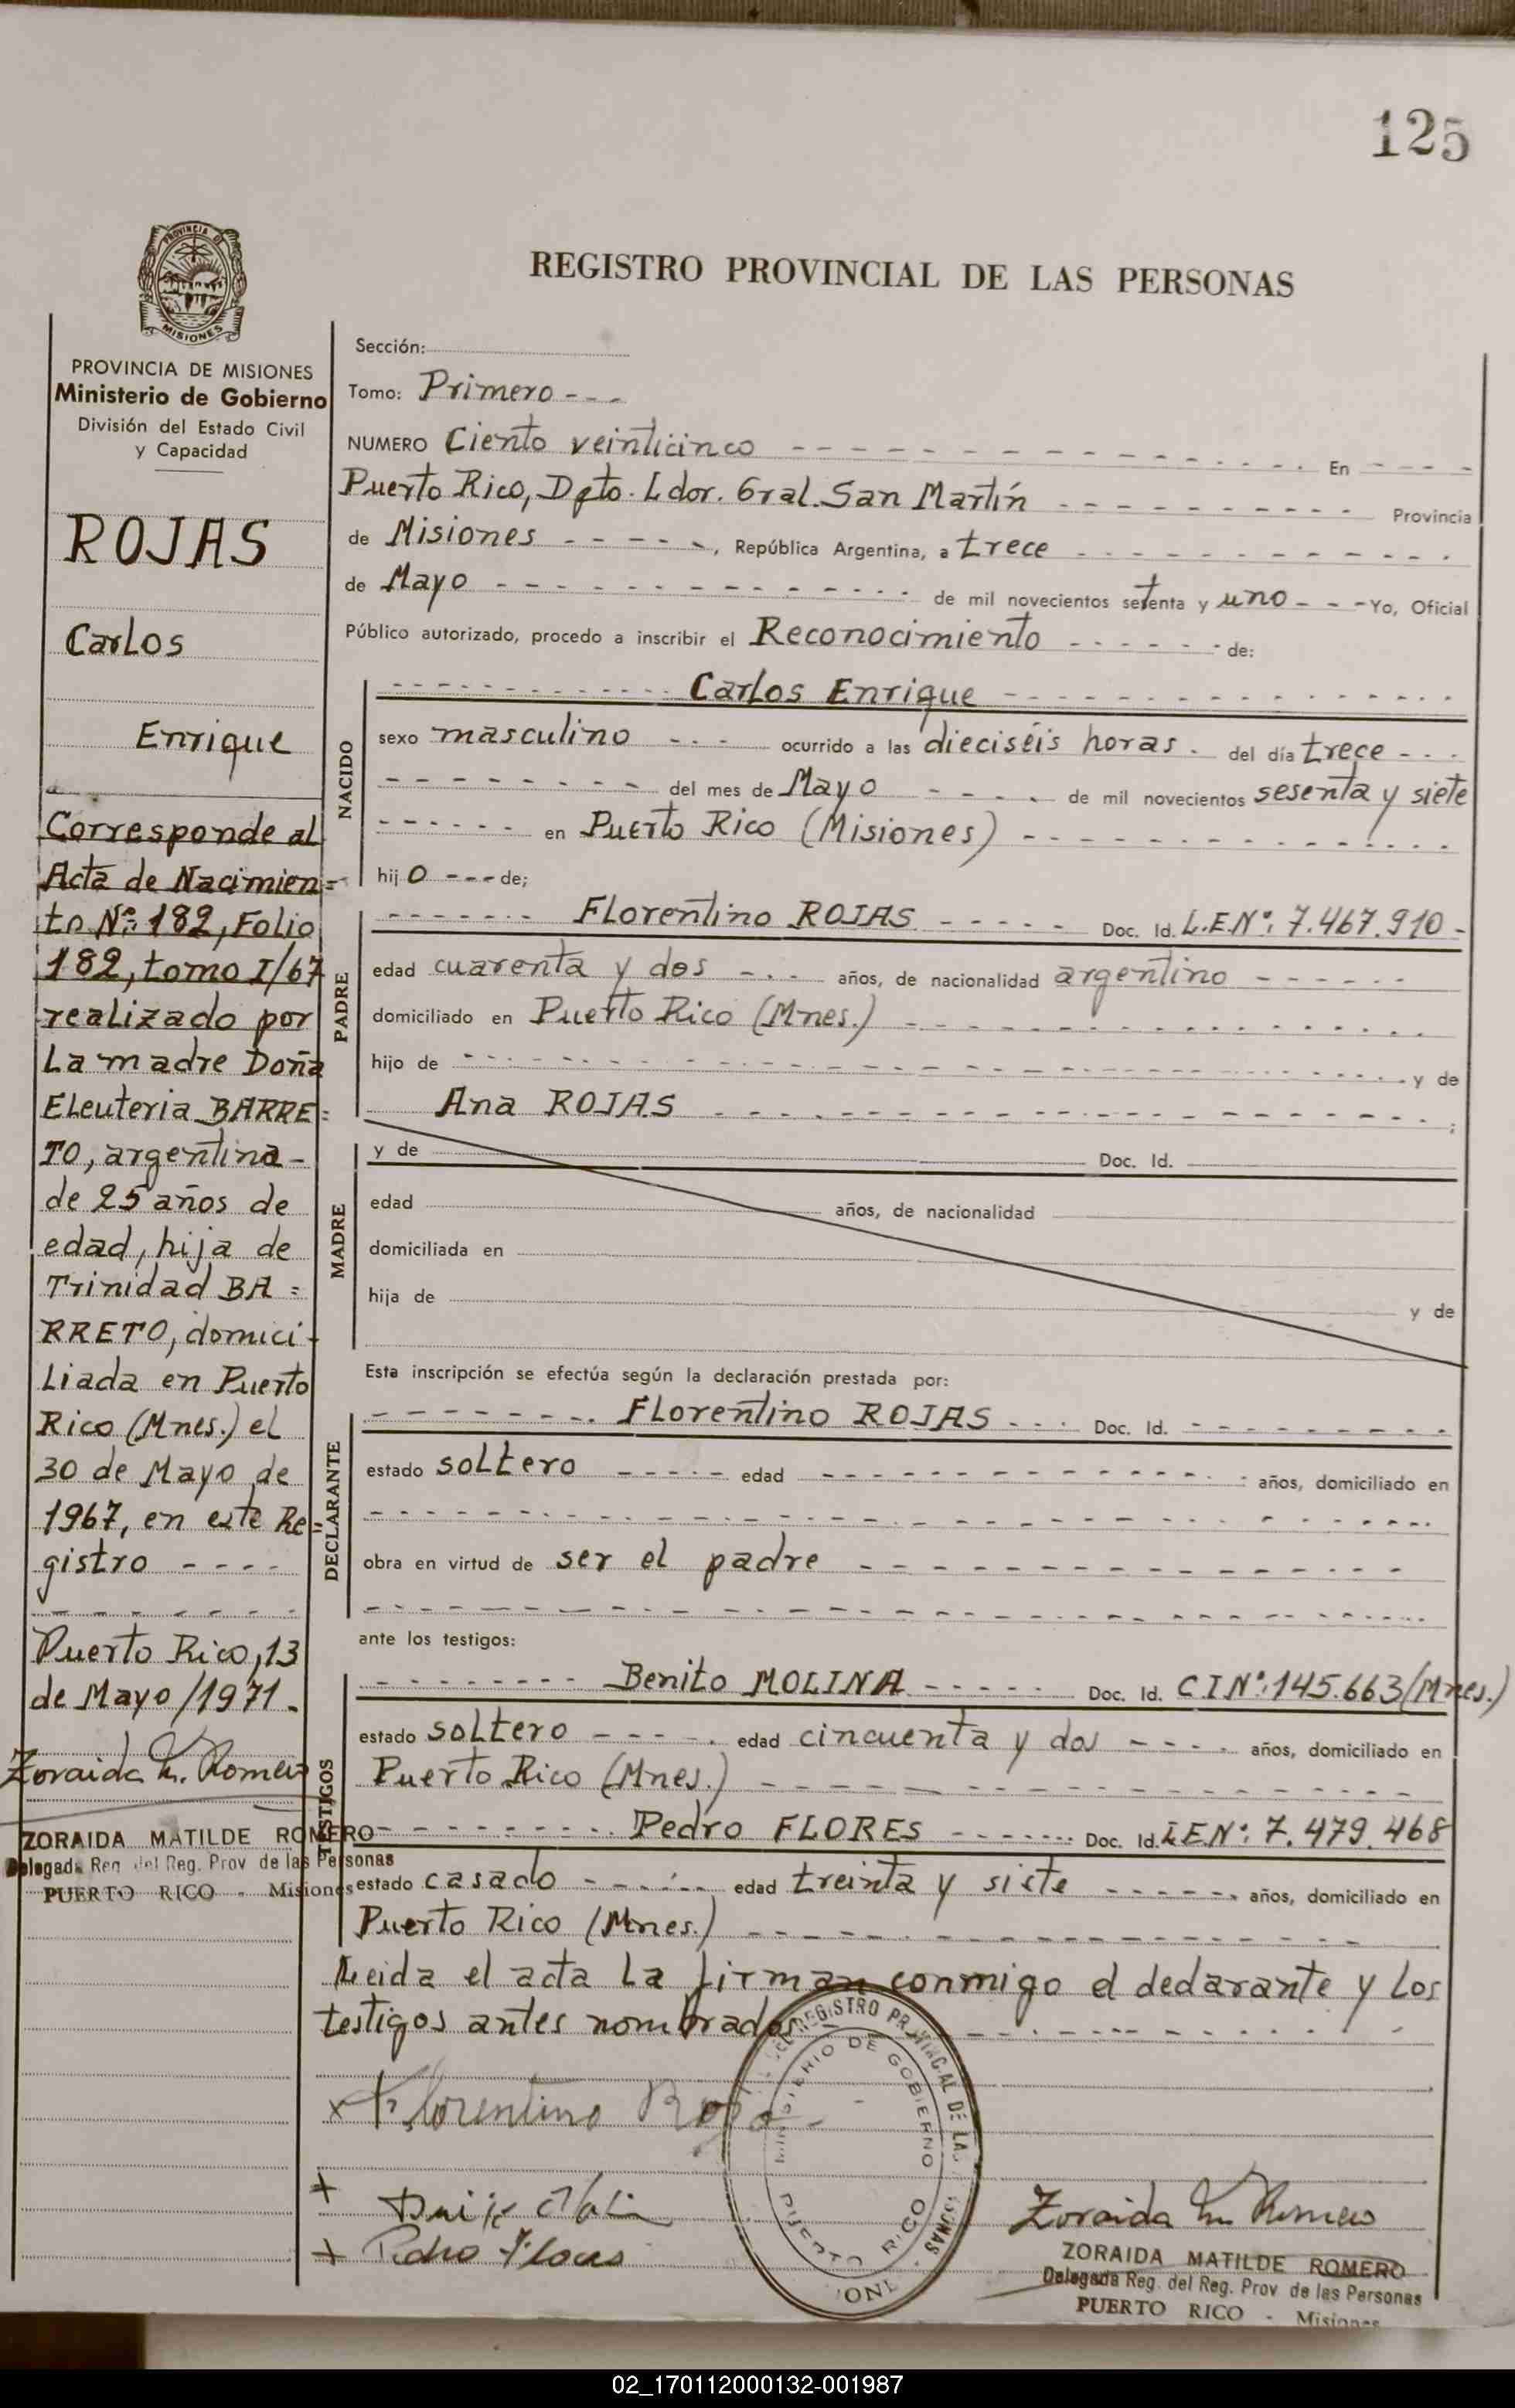 125
PROVINCIA DE
MISIONES
REGISTRO PROVINCIAL DE LAS PERSONAS
PROVINCIA DE MISIONES
Ministerio de Gobierno
División del Estado Civil
y Capacidad
ROJAS
Carlos
Enrique
Corresponde al
Acta de Nacimien=
to Nº: 182, Folio
182, tomo I/67
realizado por
La madre Doña
Eleuteria BARRE=
TO, argentina-
de 25 años de
edad, hija de
Trinidad BA=
RRETO, domici-
Liada en Puerto
Rico (Mnes.) el
30 de Mayo de
1967, en este Re=
gistro ----
-------
Puerto Rico, 13
de Mayo/1971.
Zoraida M. Romero
ZORAIDA MATILDE ROMERO
Delegada Reg. del Reg. Prov de las Personas
PUERTO RICO - Misiones
Sección:
Tomo: Primero---
NUMERO Ciento veinticinco --- En ---
Puerto Rico, Dpto. Ldor. Gral. San Martín --- Provincia
de Misiones -----, República Argentina, a trece ---
de Mayo --- de mil novecientos setenta y uno --- Yo, Oficial
Público autorizado, procedo a inscribir el Reconocimiento ------ de:
--- Carlos Enrique ---
NACIDO
sexo masculino --- ocurrido a las dieciséis horas. del día trece ---
--- del mes de Mayo --- de mil novecientos sesenta y siete
------ en Puerto Rico (Misiones) ---
hijo --- de;
PADRE
------- Florentino ROJAS ----- Doc. Id. L.E.Nº: 7.467.910 -
edad cuarenta y dos --- años, de nacionalidad argentino ------
domiciliado en Puerto Rico (Mnes.) ---
hijo de --- y de
Ana ROJAS --- ;
MADRE
y de Doc. Id.
edad años, de nacionalidad
domiciliada en
hija de y de
Esta inscripción se efectúa según la declaración prestada por:
DECLARANTE
-------- Florentino ROJAS --- Doc. Id. ---
estado soltero ----- edad --- años, domiciliado en
---
obra en virtud de ser el padre ---
---
ante los testigos:
TESTIGOS
-------- Benito MOLINA ----- Doc. Id. C.I.Nº: 145.663/(Mnes.)
estado soltero ----- edad cincuenta y dos ---- años, domiciliado en
Puerto Rico (Mnes.) ---
--------- Pedro FLORES ------- Doc. Id. L.E.Nº: 7.479.468
estado casado ------ edad treinta y siete ------ años, domiciliado en
Puerto Rico (Mnes.) ---
Leida el acta La firman conmigo el declarante y Los
testigos antes nombrados ---
x Florentino Roja
+
+ Pedro Flores
REGISTRO PROVINCIAL DE LAS
MINISTERIO DE GOBIERNO
PUERTO RICO
Zoraida M. Romero
ZORAIDA MATILDE ROMERO
Delegada Reg. del Reg. Prov de las Personas
PUERTO RICO - Misiones
02_170112000132-001987